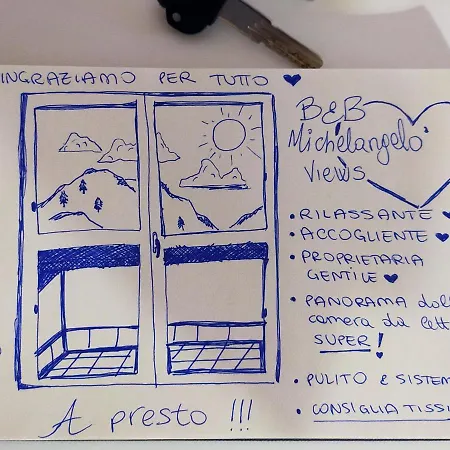 INGRAZIAMO PER TUTTO ♥
B&B
Michelangelo'
views
• RILASSANTE ♥
• ACCOGLIENTE ♥
• PROPRIETARIA
GENTILE ♥
• PANORAMA dall
camera da lett
SUPER!
• PULITO e SISTEM
• CONSIGLIATISSI
A presto !!!